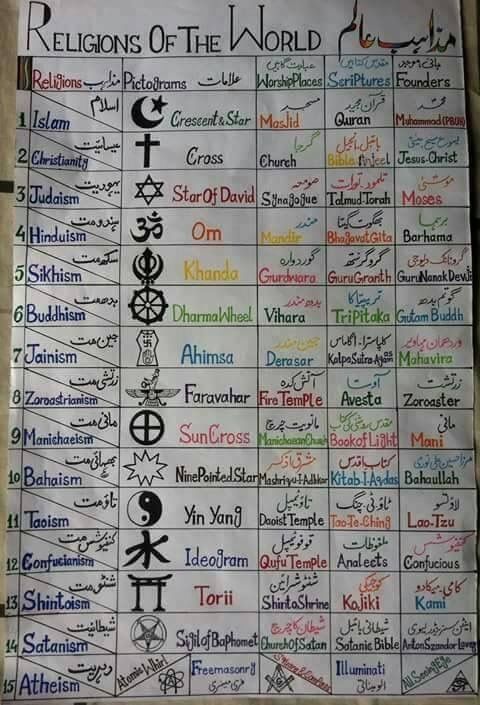 RELIGIONS OF THE WORLD مذاہب عالم
Religions مذاہب Pictograms علامات عبادت گاہیں WorshipPlaces مقدس کتابیں ScriPtures Founders
1 اسلام Islam Crescent & Star مسجد Masjid قرآن مجید Quran محمد Muhammad (PBUH)
2 عیسائیت Christianity Cross گرجا Church بائبل انجیل Bible Anjeel یسوع مسیح Jesus-Christ
3 یہودیت Judaism Star Of David صومعہ Synagogue تلمود تورات Talmud-Torah موسیٰ Moses
4 ہندو مت Hinduism Om مندر Mandir بھگوت گیتا BhagavatGita برہما Barhama
5 سکھ مت Sikhism Khanda گوردوارہ Gurdwara گرو گرنتھ GuruGranth گرونانک دیو جی GuruNanak Dev Ji
6 بدھ مت Buddhism Dharma Wheel بدھ مندر Vihara تریپتاکا TriPitaka گوتم بدھ Gutam Buddh
7 جین مت Jainism Ahimsa جین مندر Derasar کلپا سترا۔اگاماس KalpaSutra-Agams وردھمان مہاویر Mahavira
8 زرتشی مت Zoroastrianism Faravahar آتش کدہ Fire Temple آوستا Avesta زرتشت Zoroaster
9 مانی مت Manichaeism Sun Cross مانویت چرچ Manichaean Church مقدس روشنی کی کتاب Book of Light مانی Mani
10 بہائی مت Bahaism Nine Pointed Star مشرق اذکار Mashriqu-l-Adhkar کتاب اقدس Kitab-I-Aqdas مرزا حسین علی نوری Bahaullah
11 تاؤ مت Taoism Yin Yang تاؤ ٹیمپل Daoist Temple تاؤ ٹی چنگ Tao-Te-Ching لاؤ تسو Lao-Tzu
12 کنفیوشس مت Confucianism Ideogram قوفو ٹیمپل Qufu Temple ملفوظات Analects کنفیوشس Confucious
13 شنٹو مت Shintoism Torii شنٹو شرائن Shinto Shrine کوجیکی Kojiki کامی۔میکادو Kami
14 شیطانیت Satanism Sigil of Baphomet شیطان کا چرچ Church Of Satan شیطانی بائبل Satanic Bible Anton Szandor Lavey
15 دہریت Atheism Atomic Whirl Freemasonry فری میسنری Square & Compass Illuminati الومیناتی All Seeing Eye